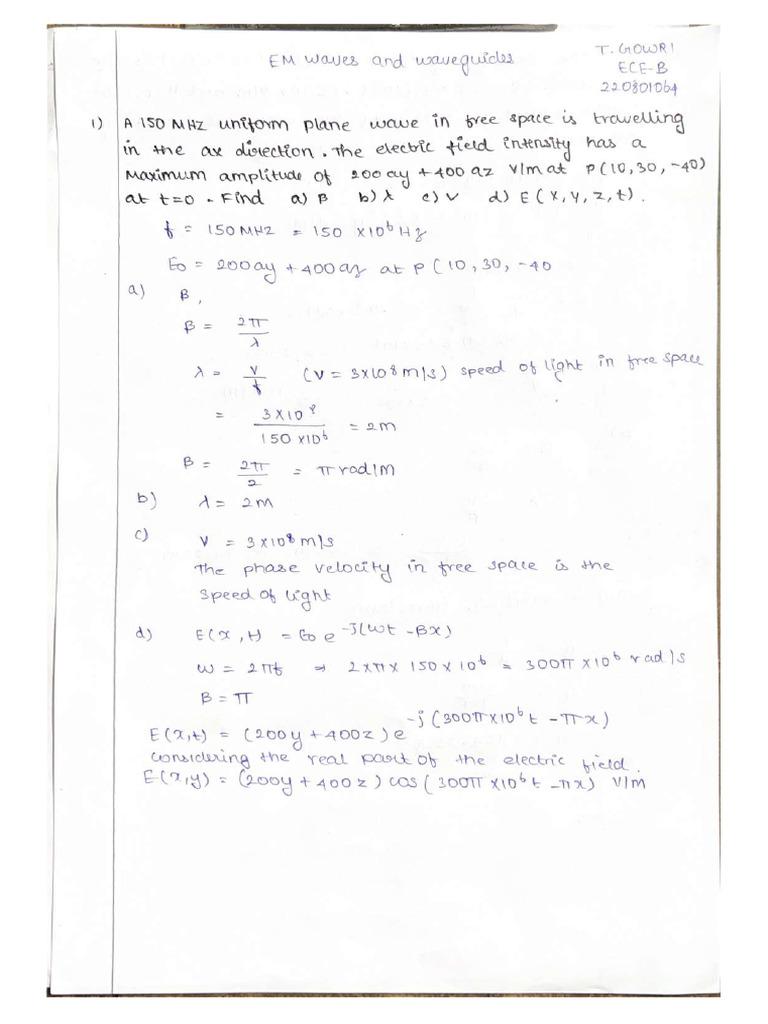 EM waves and waveguides
T. GOWRI
ECE-B
220801064
1) A 150 MHz uniform plane wave in free space is travelling
in the ax direction. The electric field intensity has a
Maximum amplitude of 200ay + 400 az V/m at P(10, 30, -40)
at t=0. Find a) β b) λ c) V d) E (x, y, z, t).
f = 150 MHz = 150 × 10⁶ Hz
E₀ = 200ay + 400az at P (10, 30, -40
a) β,
β = 2π/λ
λ = V/f (V = 3×10⁸ m/s) speed of light in free space
= 3×10⁸/150×10⁶ = 2m
β = 2π/2 = π rad/m
b) λ = 2m
c) V = 3×10⁸ m/s
The phase velocity in free space is the
speed of light
d) E(x, t) = E₀ e^-j(ωt - βx)
ω = 2πf ⇒ 2×π× 150×10⁶ = 300π×10⁶ rad/s
β = π
E(x,t) = (200y + 400z) e^-j(300π×10⁶t - πx)
considering the real part of the electric field.
E(x,y) = (200y + 400z) cos(300π×10⁶t - πx) V/m